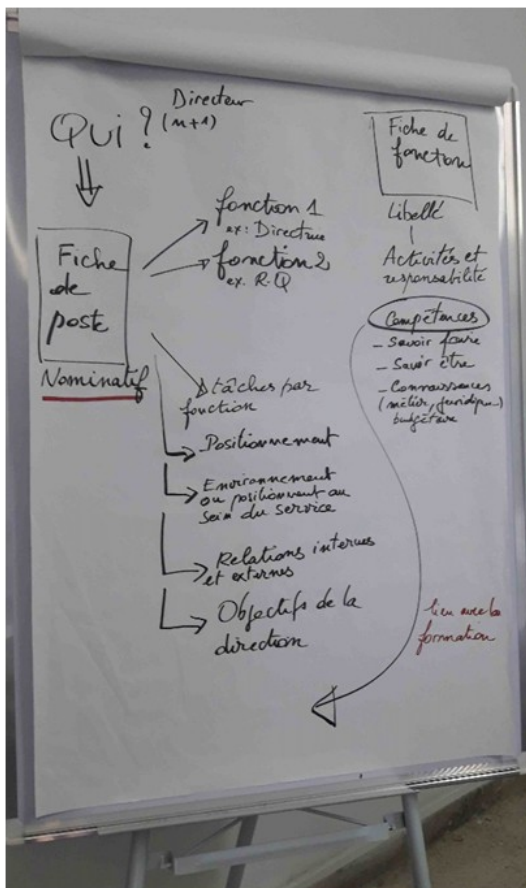 Qui ?
Directeur
(n+1)
Fiche
de
poste
Nominatif
fonction 1
ex: Directrice
fonction 2
ex. R.Q
tâches par
fonction
Positionnement
Environnement
ou positionnement au
sein du service
Relations internes
et externes
Objectifs de la
direction
Fiche de
fonction
Libellé
Activités et
responsabilité
Compétences
- Savoir faire
- Savoir être
- Connaissances
(métier, juridique...)
budgétaire
lien avec la
formation